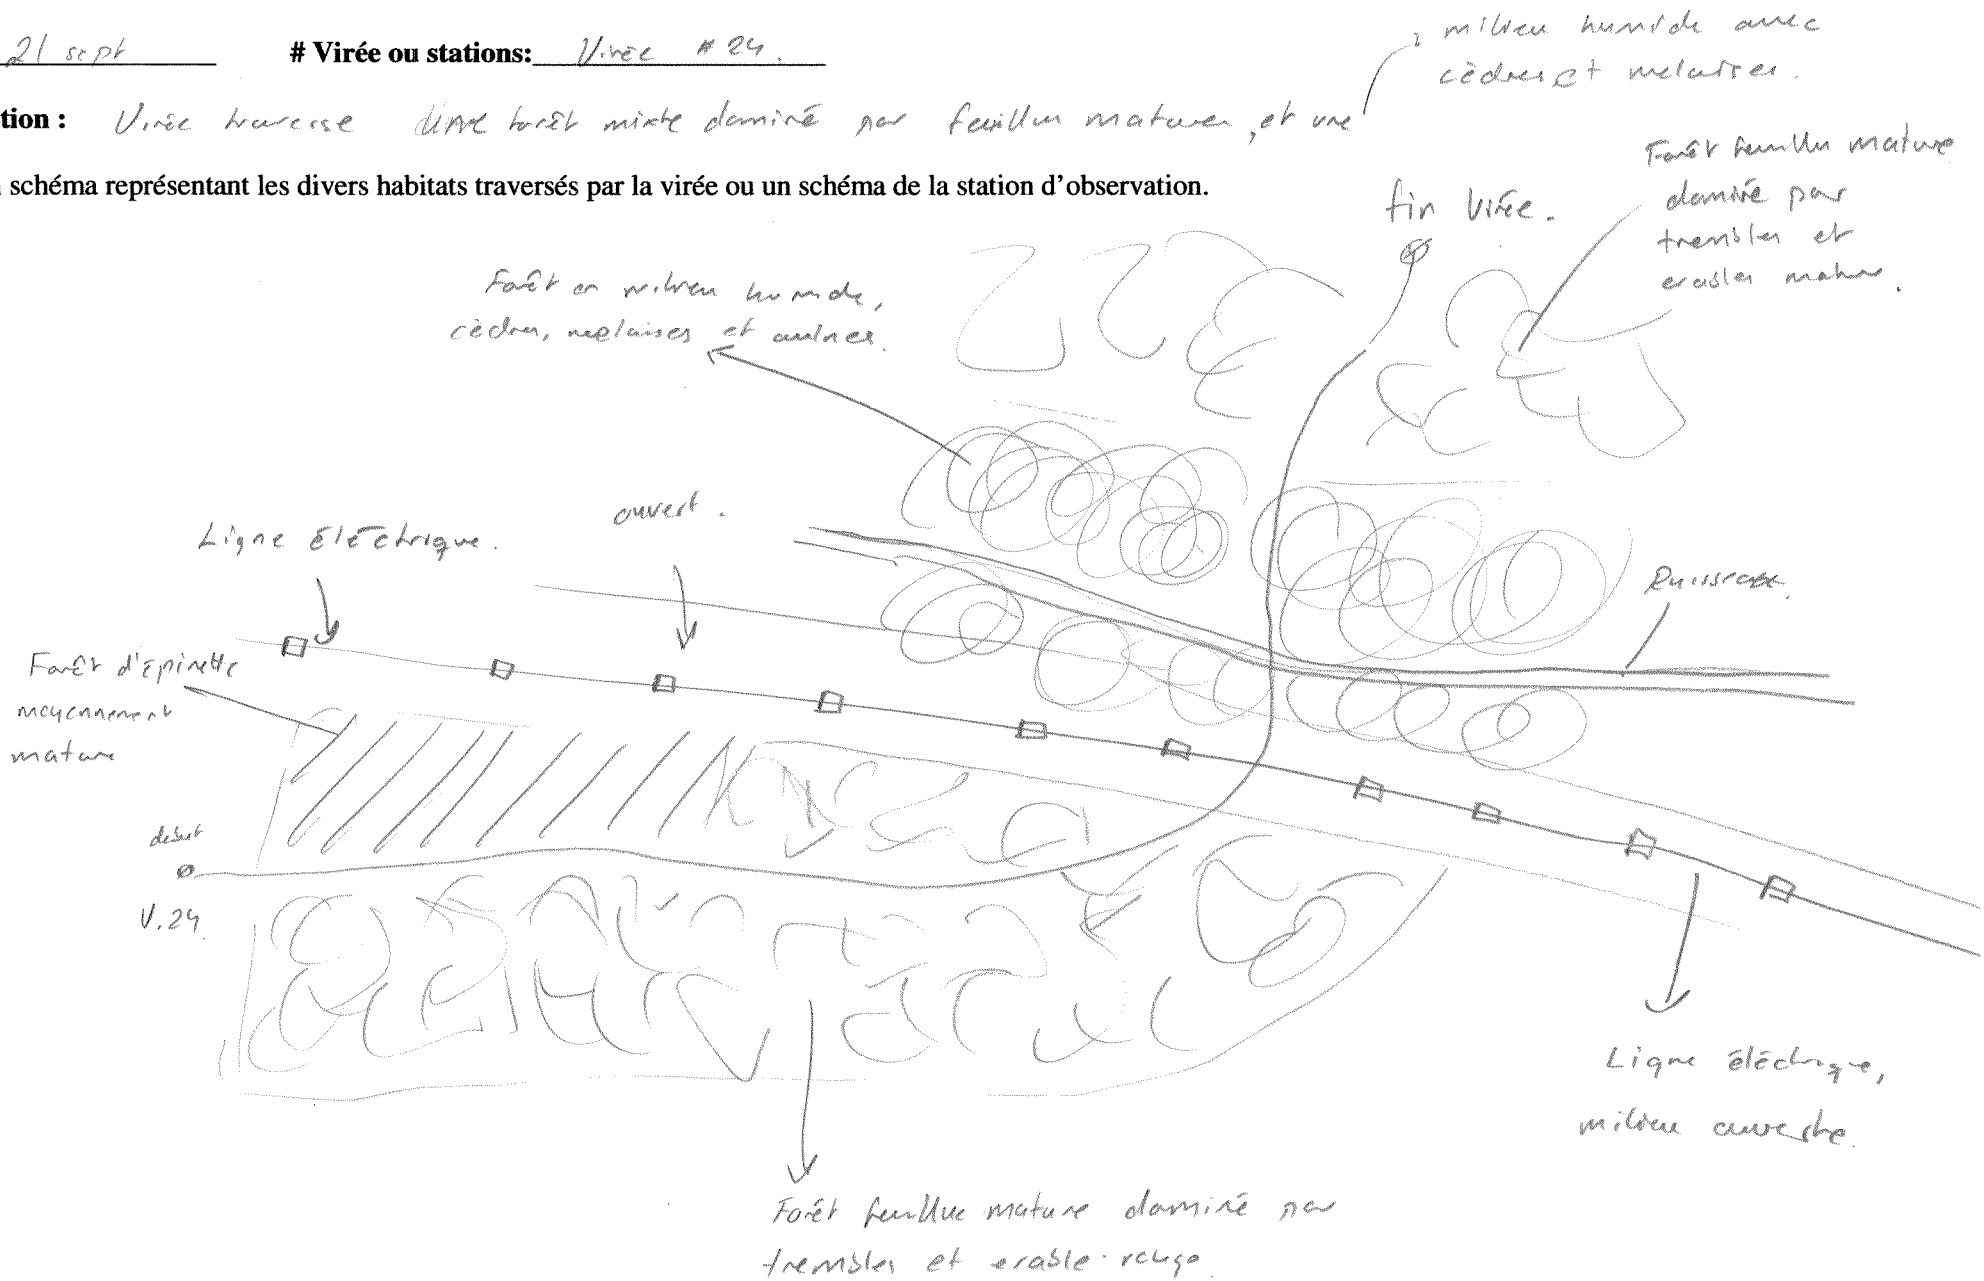 21 sept # Virée ou stations: Virée # 24.
milieu humide avec
cèdres et melaises.
tion : Virée traverse une forêt mixte dominé par feuillus matures, et une
schéma représentant les divers habitats traversés par la virée ou un schéma de la station d'observation.
Forêt feuillu mature
dominé par
trembles et
erables mature.
fin Virée.
Forêt en milieu humide,
cèdres, melaises et aulnes.
ouvert.
Ligne éléctrique.
Ruisseau.
Forêt d'épinette
moyennement
mature
debut
V.24
Ligne éléctrique,
milieu ouverte.
Forêt feuillue mature dominé par
trembles et erable rouge